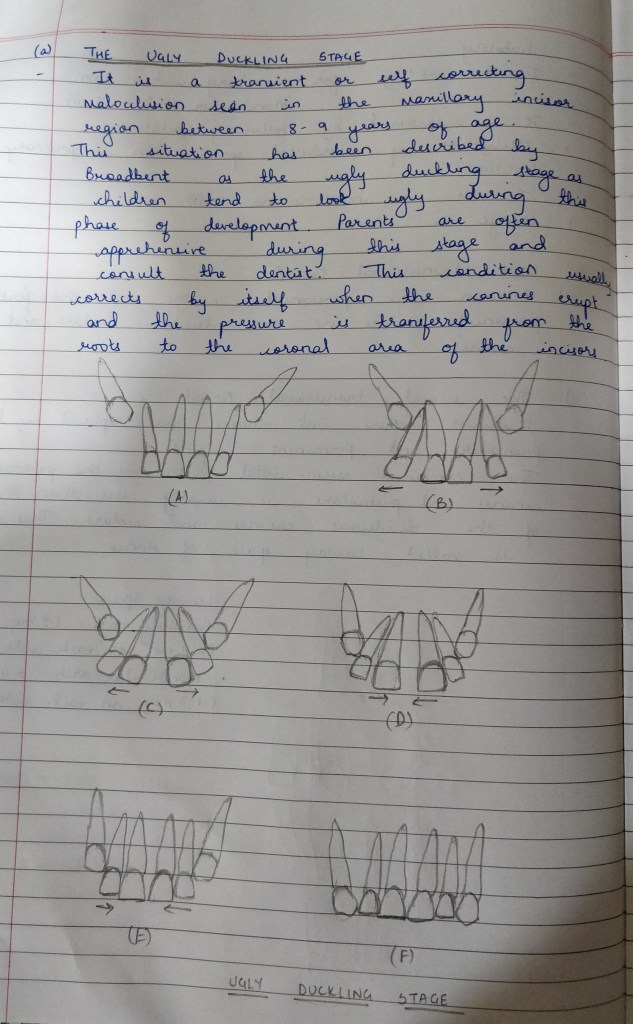 (a) THE UGLY DUCKLING STAGE
- It is a transient or self correcting
malocclusion seen in the maxillary incisor
region between 8-9 years of age.
This situation has been described by
Broadbent as the ugly duckling stage as
children tend to look ugly during this
phase of development. Parents are often
apprehensive during this stage and
consult the dentist. This condition usually
corrects by itself when the canines erupt
and the pressure is transferred from the
roots to the coronal area of the incisors
(A) (B)
(C) (D)
(E) (F)
UGLY DUCKLING STAGE